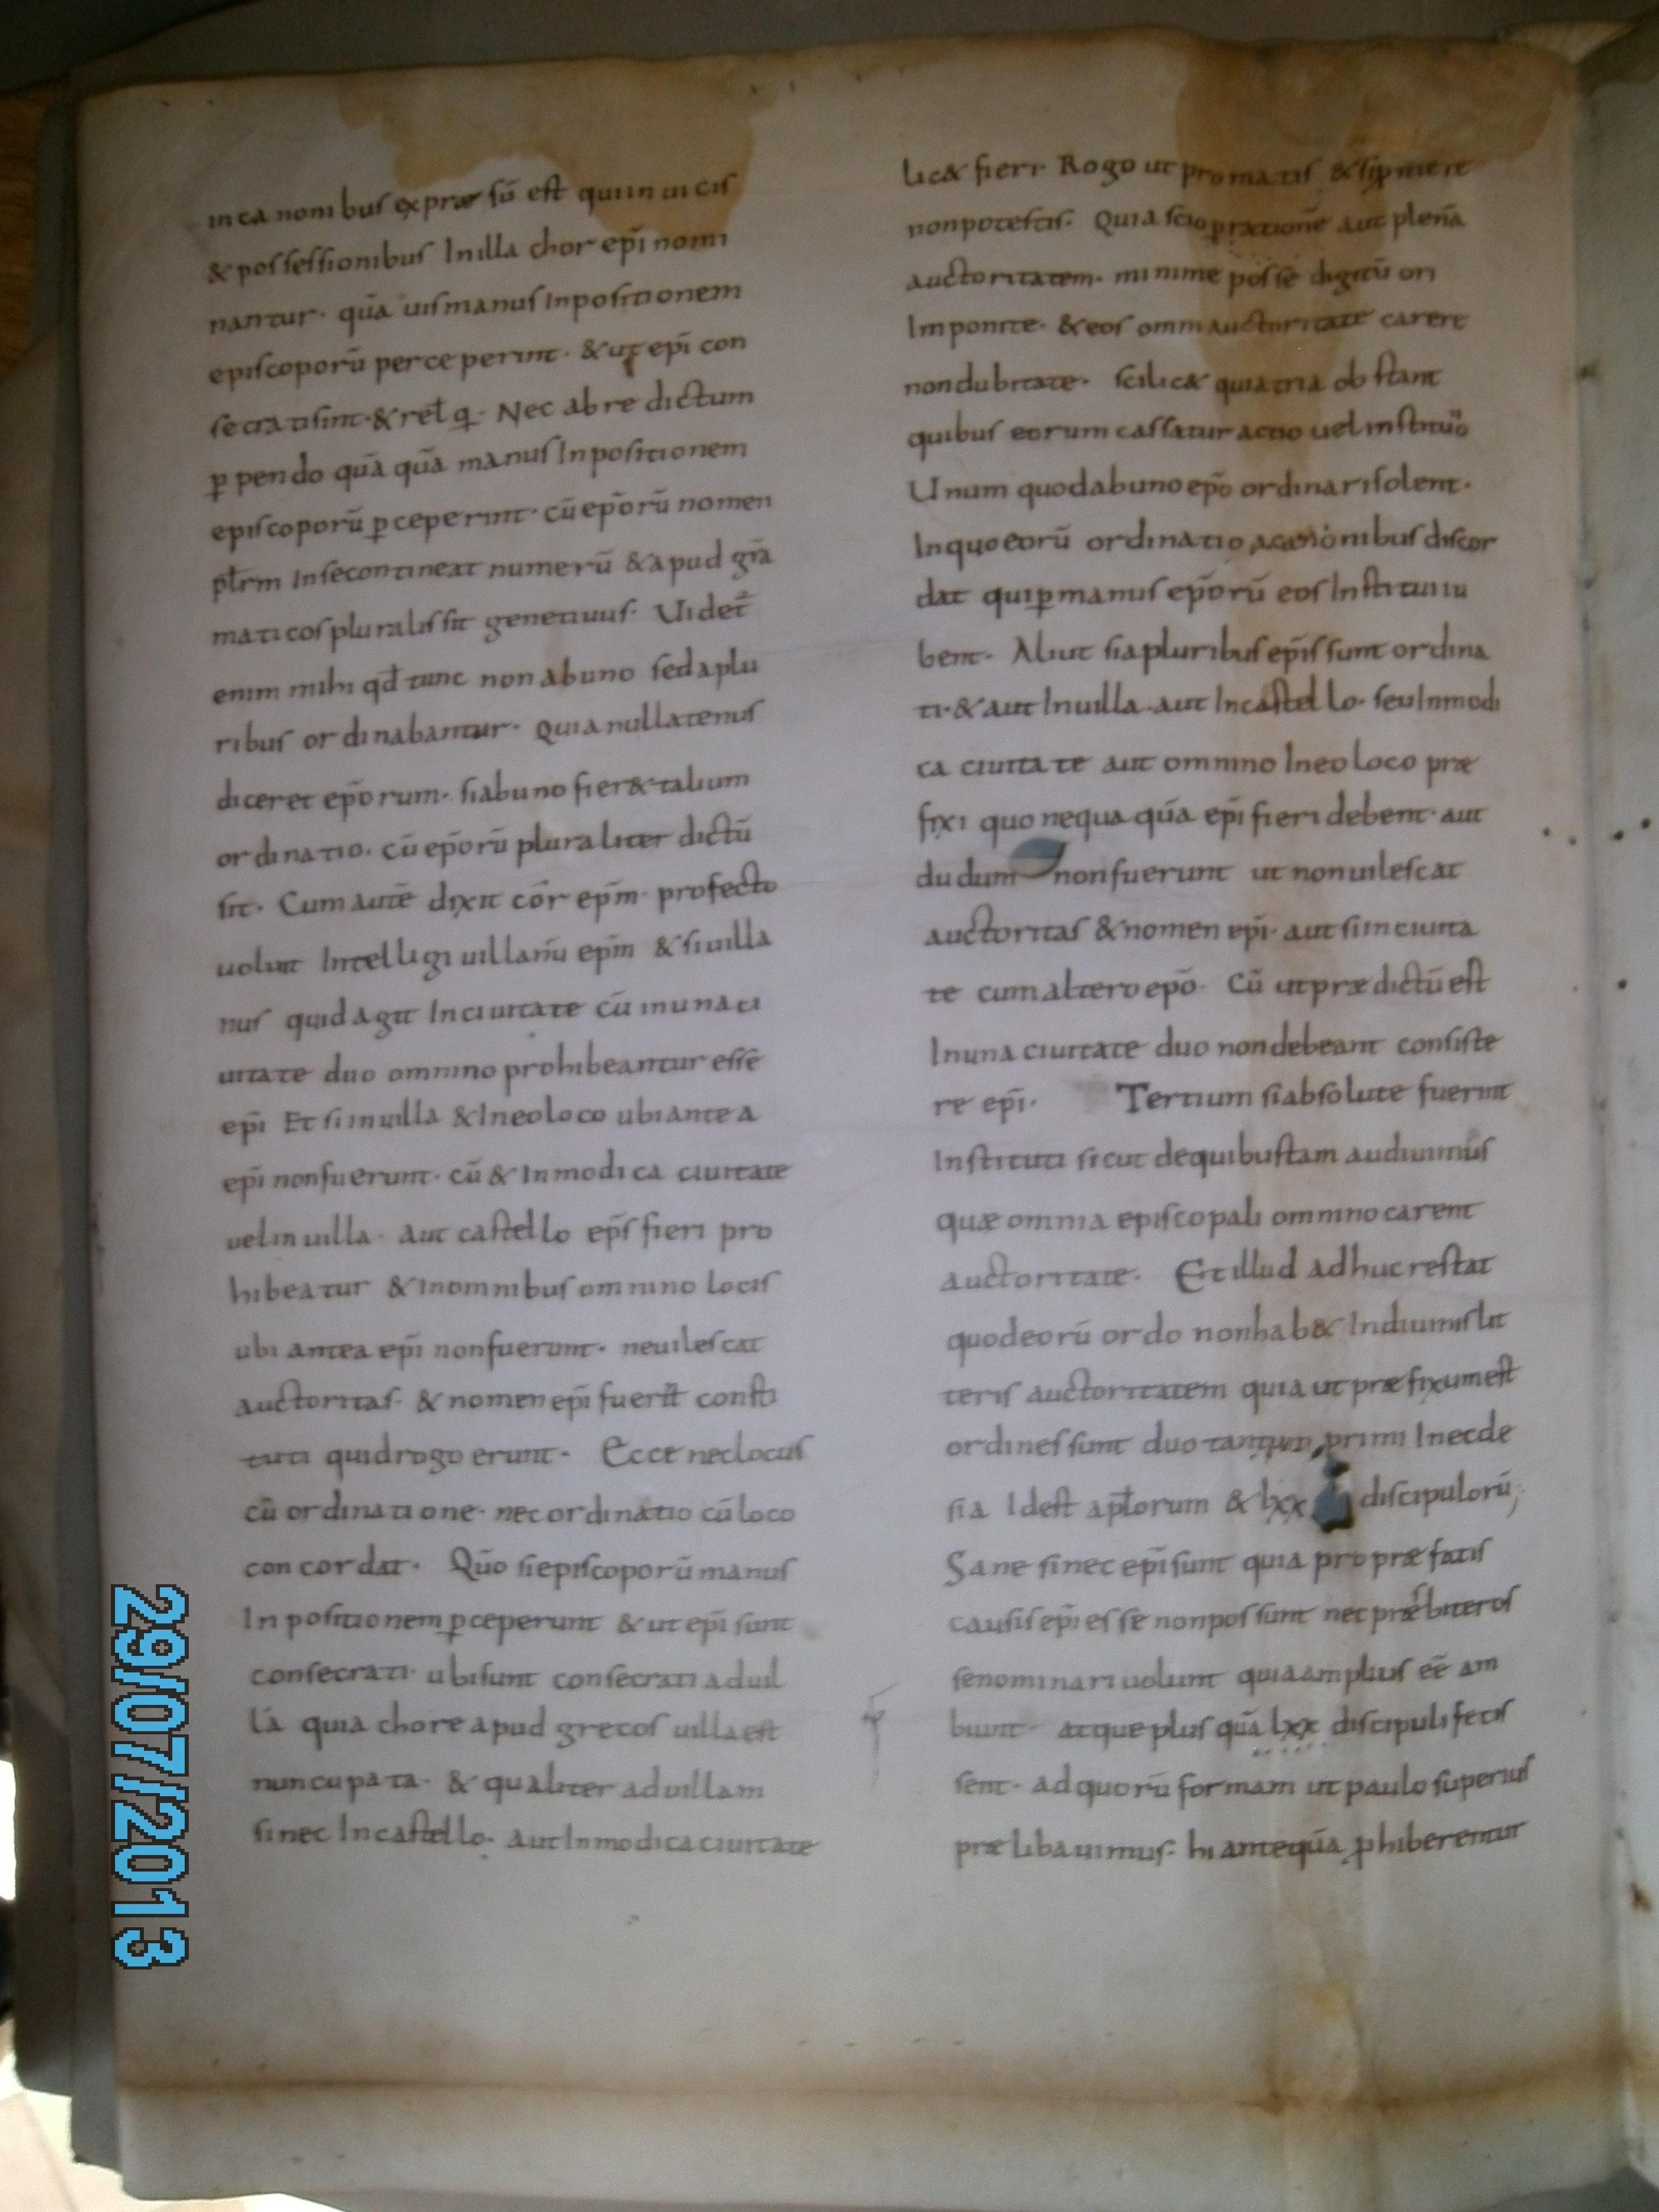 in canonibus expræsū est qui in uicis
& possessionibus In illa chor epī nomi
nantur· quā uis manus Inpositionem
episcoporū perceperint· & ut epī con
secrati sint· & rel q· Nec ab re dictum
ꝑpendo quā quā manus Inpositionem
episcoporū ꝑceperint· cū epōrū nomen
pl̄rm In se contineat numerū & apud grā
maticos pluralis sit genetiuus· Uidet̄
enim mihi qd̄ tunc non ab uno sed a plu
ribus ordinabantur· Quia nullatenus
diceret epōrum· si ab uno fier& talium
ordinatio· cū epōrū pluraliter dictū
sit· Cum autē dixit cōr epm̄· profecto
uoluit Intelligi uillanū epm̄ & si uilla
nus quid agit In ciuitate cū in una ci
uitate duo omnino prohibeantur esse
epī Et si in uilla & In eo loco ubi antea
epī non fuerunt· cū & In modica ciuitate
uel in uilla· aut castello ep̄s fieri pro
hibeatur & in omnibus omnino locis
ubi antea epī non fuerunt· ne uilescat
auctoritas· & nomen epī fuerīt consti
tuti quid rogo erunt· Ecce nec locus
cū ordinatione· nec ordinatio cū loco
concordat· Qūo si episcoporū manus
In positionem ꝑceperunt & ut epī sunt
consecrati· ubi sunt consecrati ad uil
lā quia chore apud grecos uilla est
nuncupata· & qualiter ad uillam
si nec In castello· aut In modica ciuitate
lic& fieri· Rogo ut promatis &
non potestis· Quia scio ꝑrationē aut plenā
auctoritatem· minime posse digitū ori
Imponite· & eos omni auctoritate carere
non dubitate· scilic& quia tria obstant
quibus eorum cassatur actio uel institutio
Unum quod ab uno epō ordinari solent·
In quo eorū ordinatio a canonibus discor
dat qui ꝑ manus epōrū eos Institui iu
bent· Aliut si a pluribus epīs sunt ordina
ti· & aut In uilla· aut In castello· seu In modi
ca ciuitate aut omnino In eo loco præ
fixi quo nequaquā epī fieri debent· aut
dudum non fuerunt ut non uilescat
auctoritas & nomen epī· aut si in ciuita
te cum altero epō· Cū ut prædictū est
In una ciuitate duo non debeant consiste
re epī· Tertium si absolute fuerint
Instituti sicut de quibustam audiuimus
quæ omnia episcopali omnino carent
auctoritate· Et illud adhuc restat
quod eorū ordo non hab& In diuinis lit
teris auctoritatem quia ut præfixum est
ordines sunt duo tantum primi In ecde
sia Id est apl̄orum & lxx discipulorū;
Sane si nec epī sunt quia pro præfatis
causis epī esse non possunt nec præsbiteros
se nominari uolunt quia amplius eē am
biunt· atque plus quā lxx discipuli fecis
sent· ad quorū formam ut paulo superius
prælibauimus· hi antequā ꝓhiberentur
29/07/2013